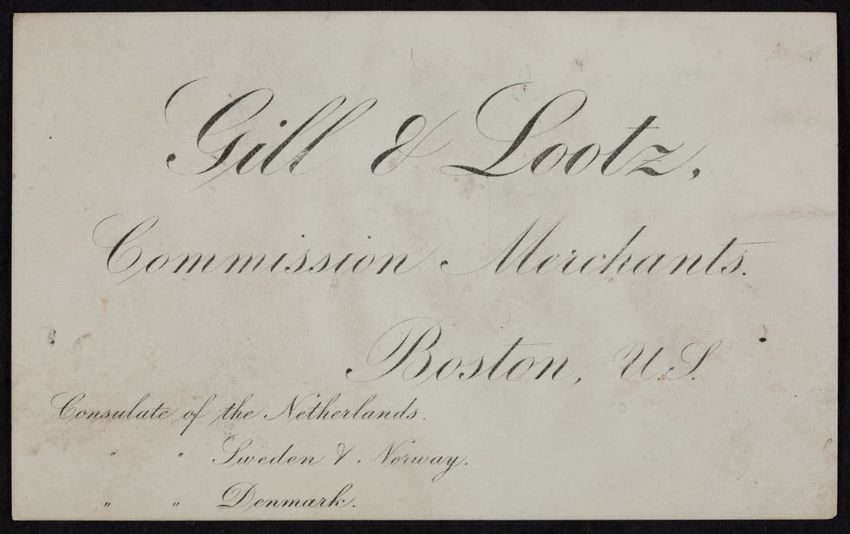 Gill & Lootz,
Commission Merchants.
Boston, U.S.
Consulate of the Netherlands.
" " Sweden & Norway.
" " Denmark.